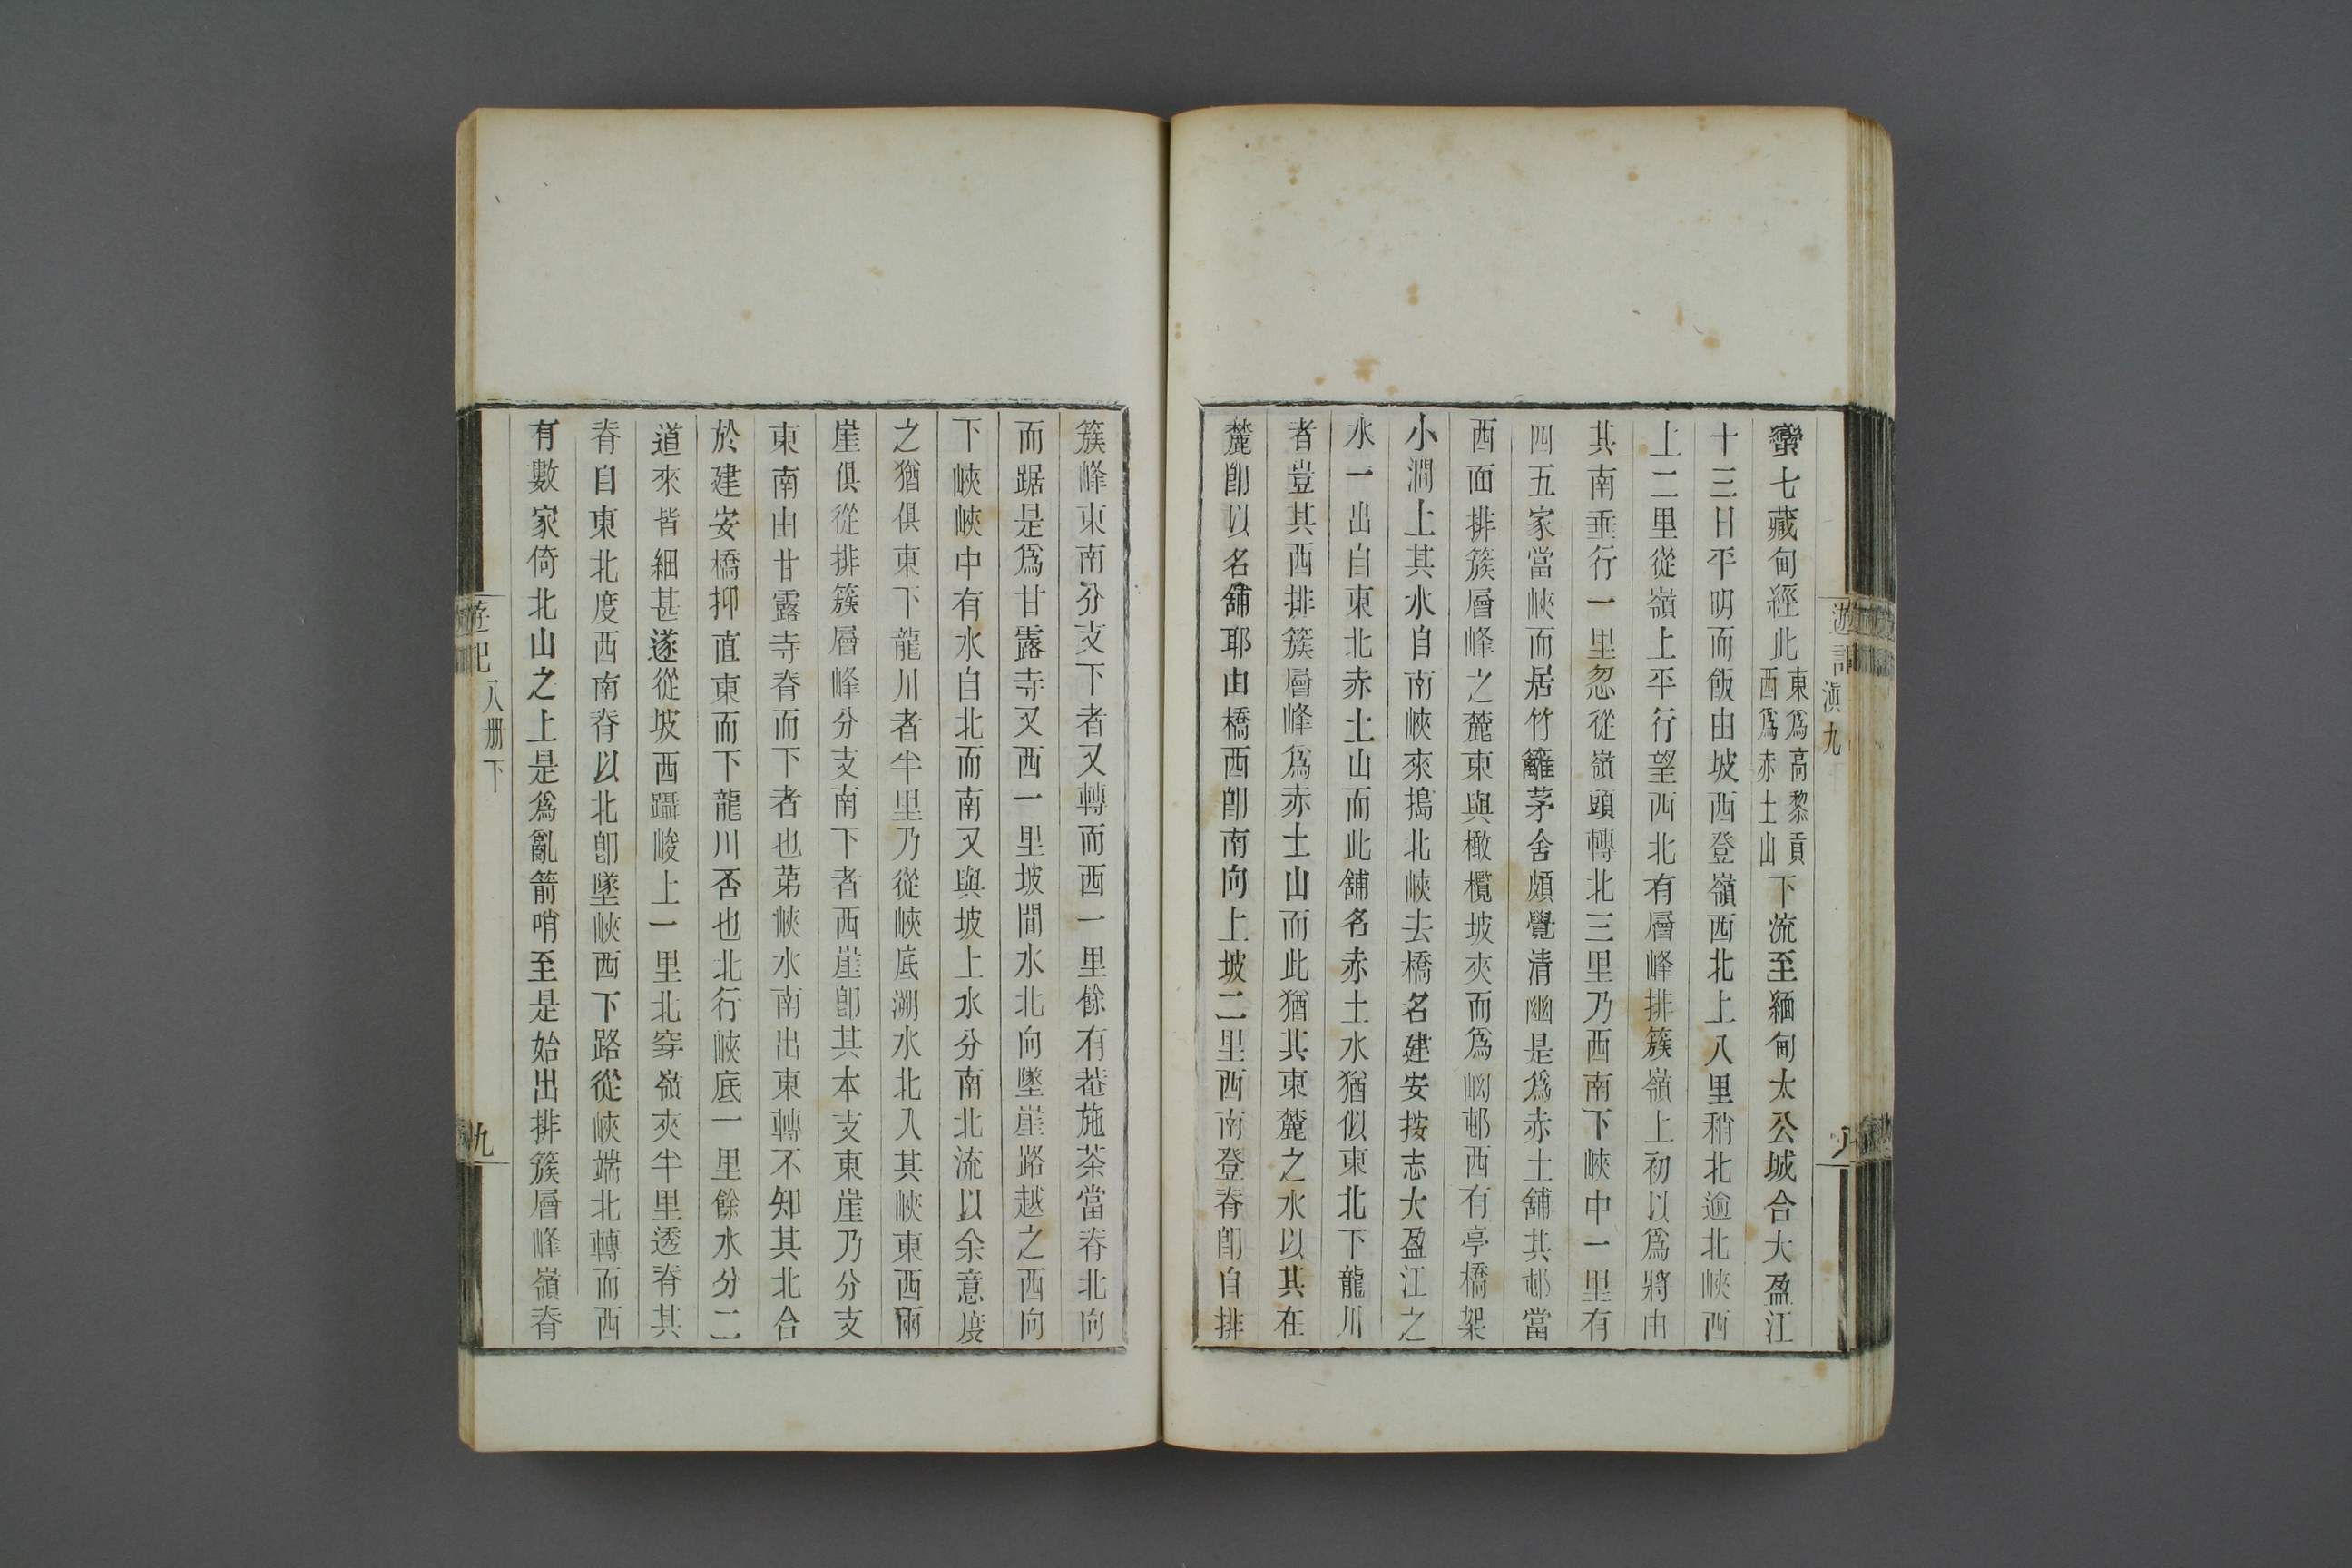 遊記
滇九
八
蠻七藏甸經此東爲高黎貢西爲赤土山下流至緬甸太公城合大盈江
十三日平明而飯由坡西登嶺西北上八里稍北逾北峽西
上二里從嶺上平行望西北有層峰排簇嶺上初以爲將由
其南垂行一里忽從嶺頭轉北三里乃西南下峽中一里有
四五家當峽而居竹籬茅舍頗覺清幽是爲赤土舖其邨當
西面排簇層峰之麓東與橄欖坡夾而爲㘭邨西有亭橋架
小澗上其水自南峽來搗北峽去橋名建安按志大盈江之
水一出自東北赤土山而此舖名赤土水猶似東北下龍川
者豈其西排簇層峰爲赤土山而此猶其東麓之水以其在
麓卽以名舖耶由橋西卽南向上坡二里西南登脊卽自排
簇峰東南分支下者又轉而西一里餘有菴施茶當脊北向
而踞是爲甘露寺又西一里坡間水北向墜崖路越之西向
下峽峽中有水自北而南又與坡上水分南北流以余意度
之猶俱東下龍川者半里乃從峽底溯水北入其峽東西兩
崖俱從排簇層峰分支南下者西崖卽其本支東崖乃分支
東南由甘露寺脊而下者也第峽水南出東轉不知其北合
於建安橋抑直東而下龍川否也北行峽底一里餘水分二
道來皆細甚遂從坡西躡峻上一里北穿嶺夾半里透脊其
脊自東北度西南脊以北卽墜峽西下路從峽端北轉而西
有數家倚北山之上是爲亂箭哨至是始出排簇層峰嶺脊
遊記
八册下
九